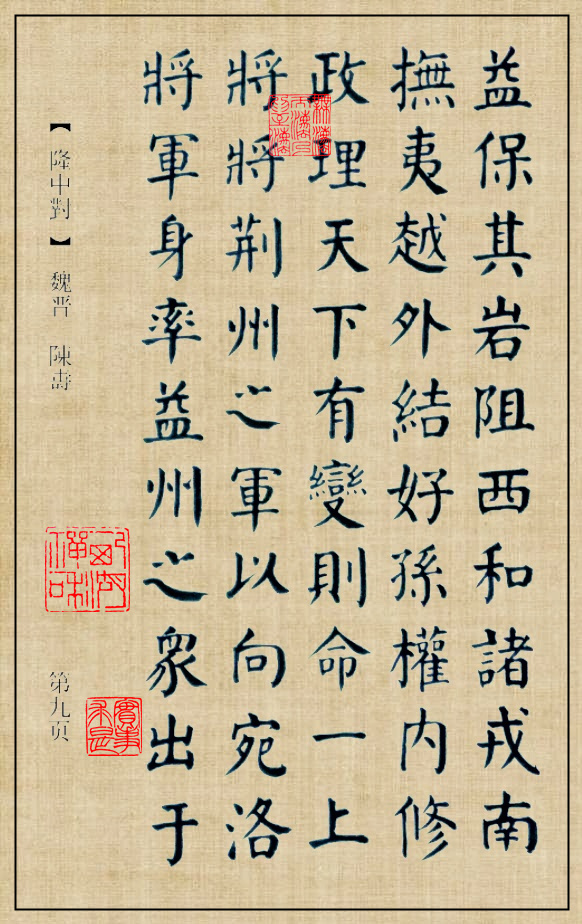 益保其岩阻西和諸戎南
撫夷越外結好孫權內修
政理天下有變則命一上
將將荆州之軍以向宛洛
將軍身率益州之眾出于
【隆中對】 魏晋 陳壽
第九页